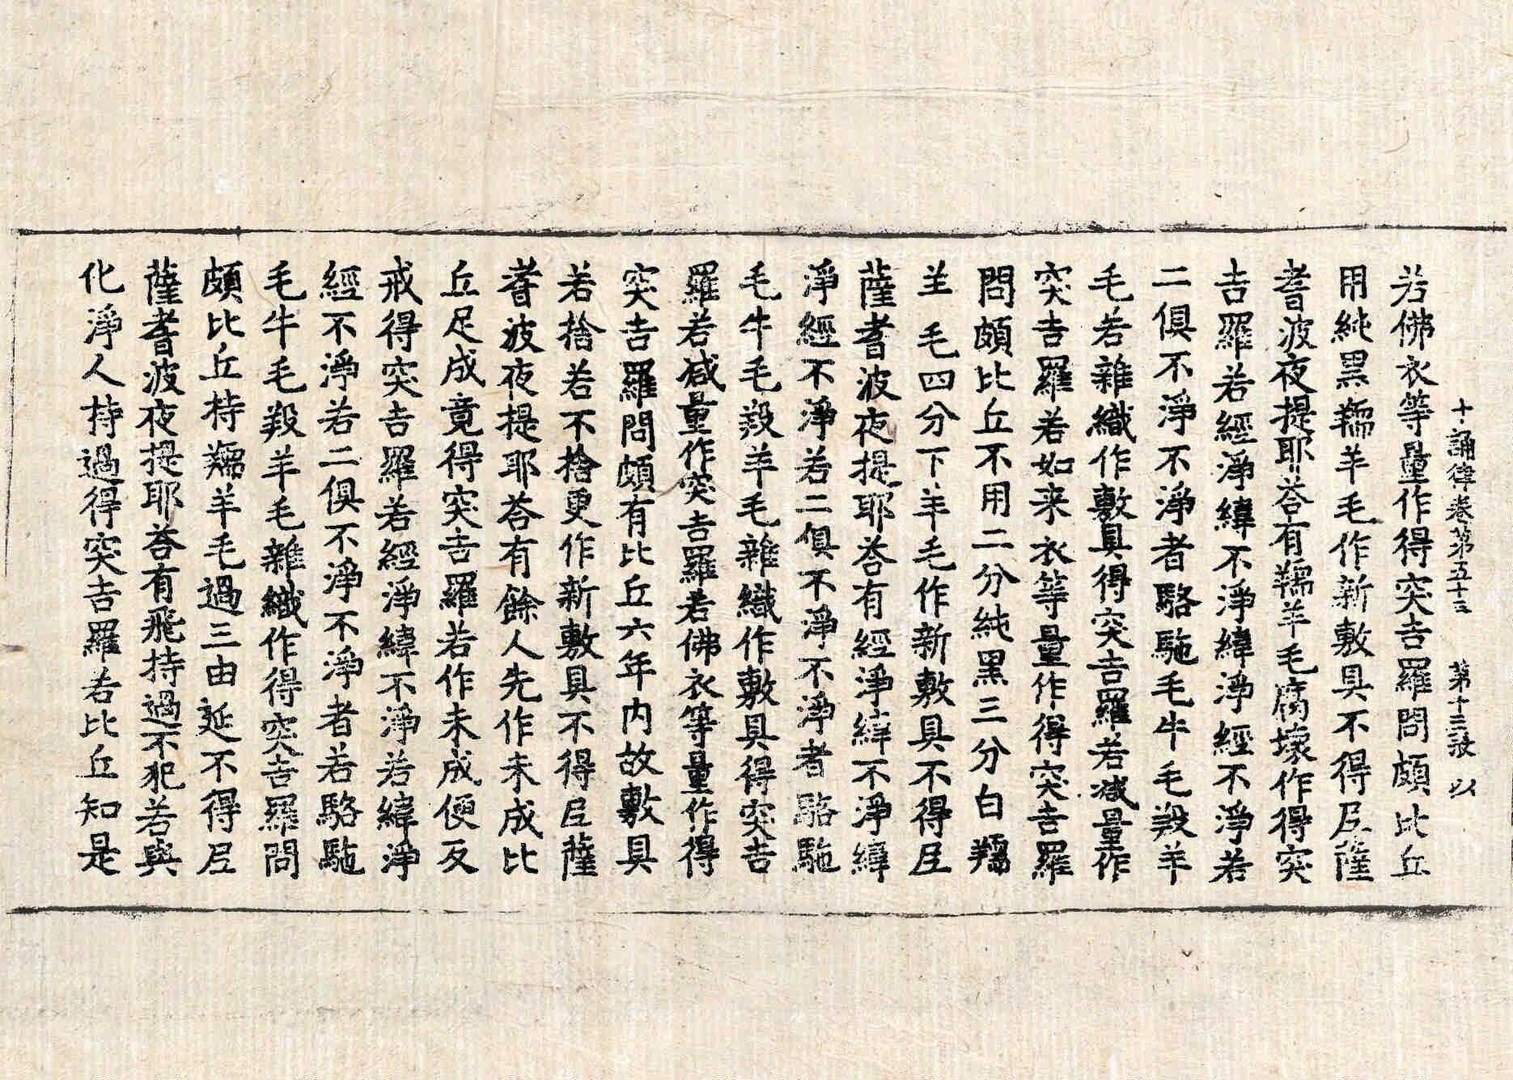 十誦律卷第五十三　第十三張　以
若佛衣等量作得突吉羅問頗比丘
用純黑羺羊毛作新敷具不得尼薩
耆波夜提耶荅有羺羊毛腐壞作得突
吉羅若經淨緯不淨緯淨經不淨若
二俱不淨不淨者駱駞毛牛毛羖羊
毛若雜織作敷具得突吉羅若减量作
突吉羅若如来衣等量作得突吉羅
問頗比丘不用二分純黒三分白羺
羊毛四分下羊毛作新敷具不得尼
薩耆波夜提耶荅有經淨緯不淨緯
淨經不淨若二俱不淨不淨者駱駞
毛牛毛羖羊毛雜織作敷具得突吉
羅若减量作突吉羅若佛衣等量作得
突吉羅問頗有比丘六年内故敷具
若捨若不捨更作新敷具不得尼薩
耆波夜提耶荅有餘人先作未成比
丘足成竟得突吉羅若作未成便反
戒得突吉羅若經淨緯不淨若緯淨
經不淨若二俱不淨不淨者若駱駞
毛牛毛羖羊毛雜織作得突吉羅問
頗比丘持羺羊毛過三由延不得尼
薩耆波夜提耶荅有飛持過不犯若與
化淨人持過得突吉羅若比丘知是